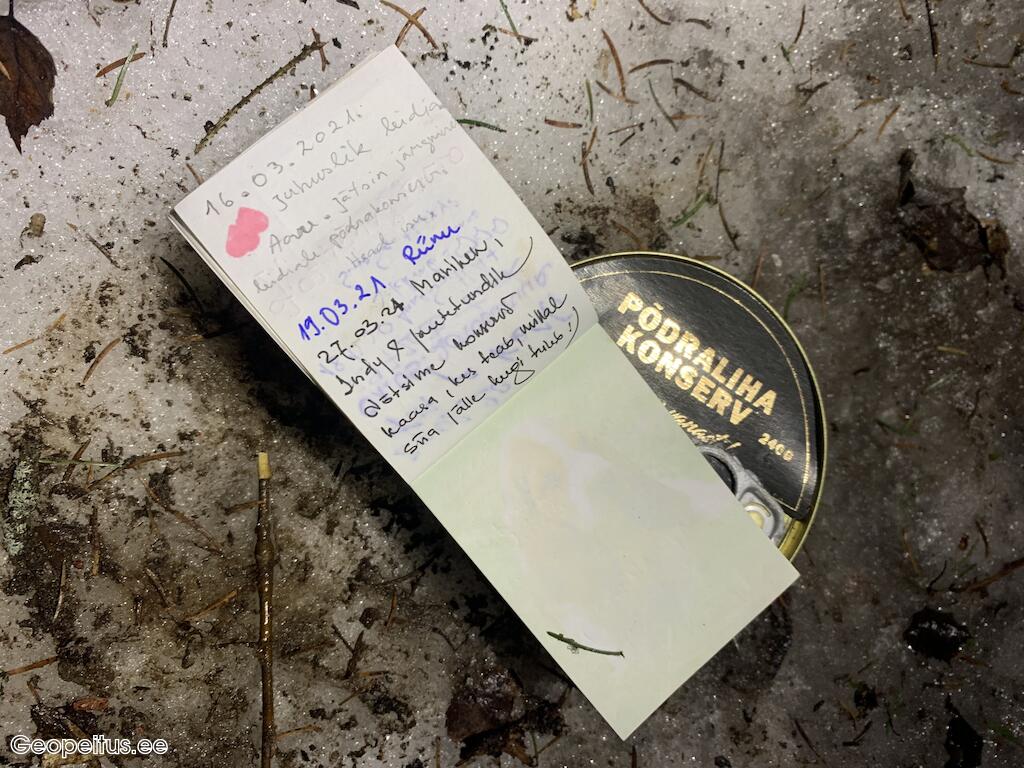 16.03.2021.
Juhuslik leidja
Aare. Jätsin järgmi
leidjale põdrakonservi
19.03.21 Riinu
27.03.21 Mammen,
Indy &
Võtsime konservi
kaasa, kes teab millal
siia jälle keegi tuleb!
PÕDRALIHA
KONSERV
240g
Geopeitus.ee